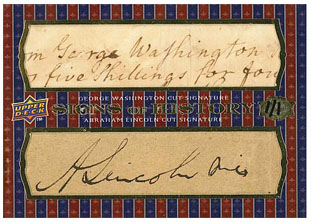 m George Washington
five Shillings for four
UPPER DECK
GEORGE WASHINGTON CUT SIGNATURE
SIGNS OF HISTORY
ABRAHAM LINCOLN CUT SIGNATURE
A Lincoln